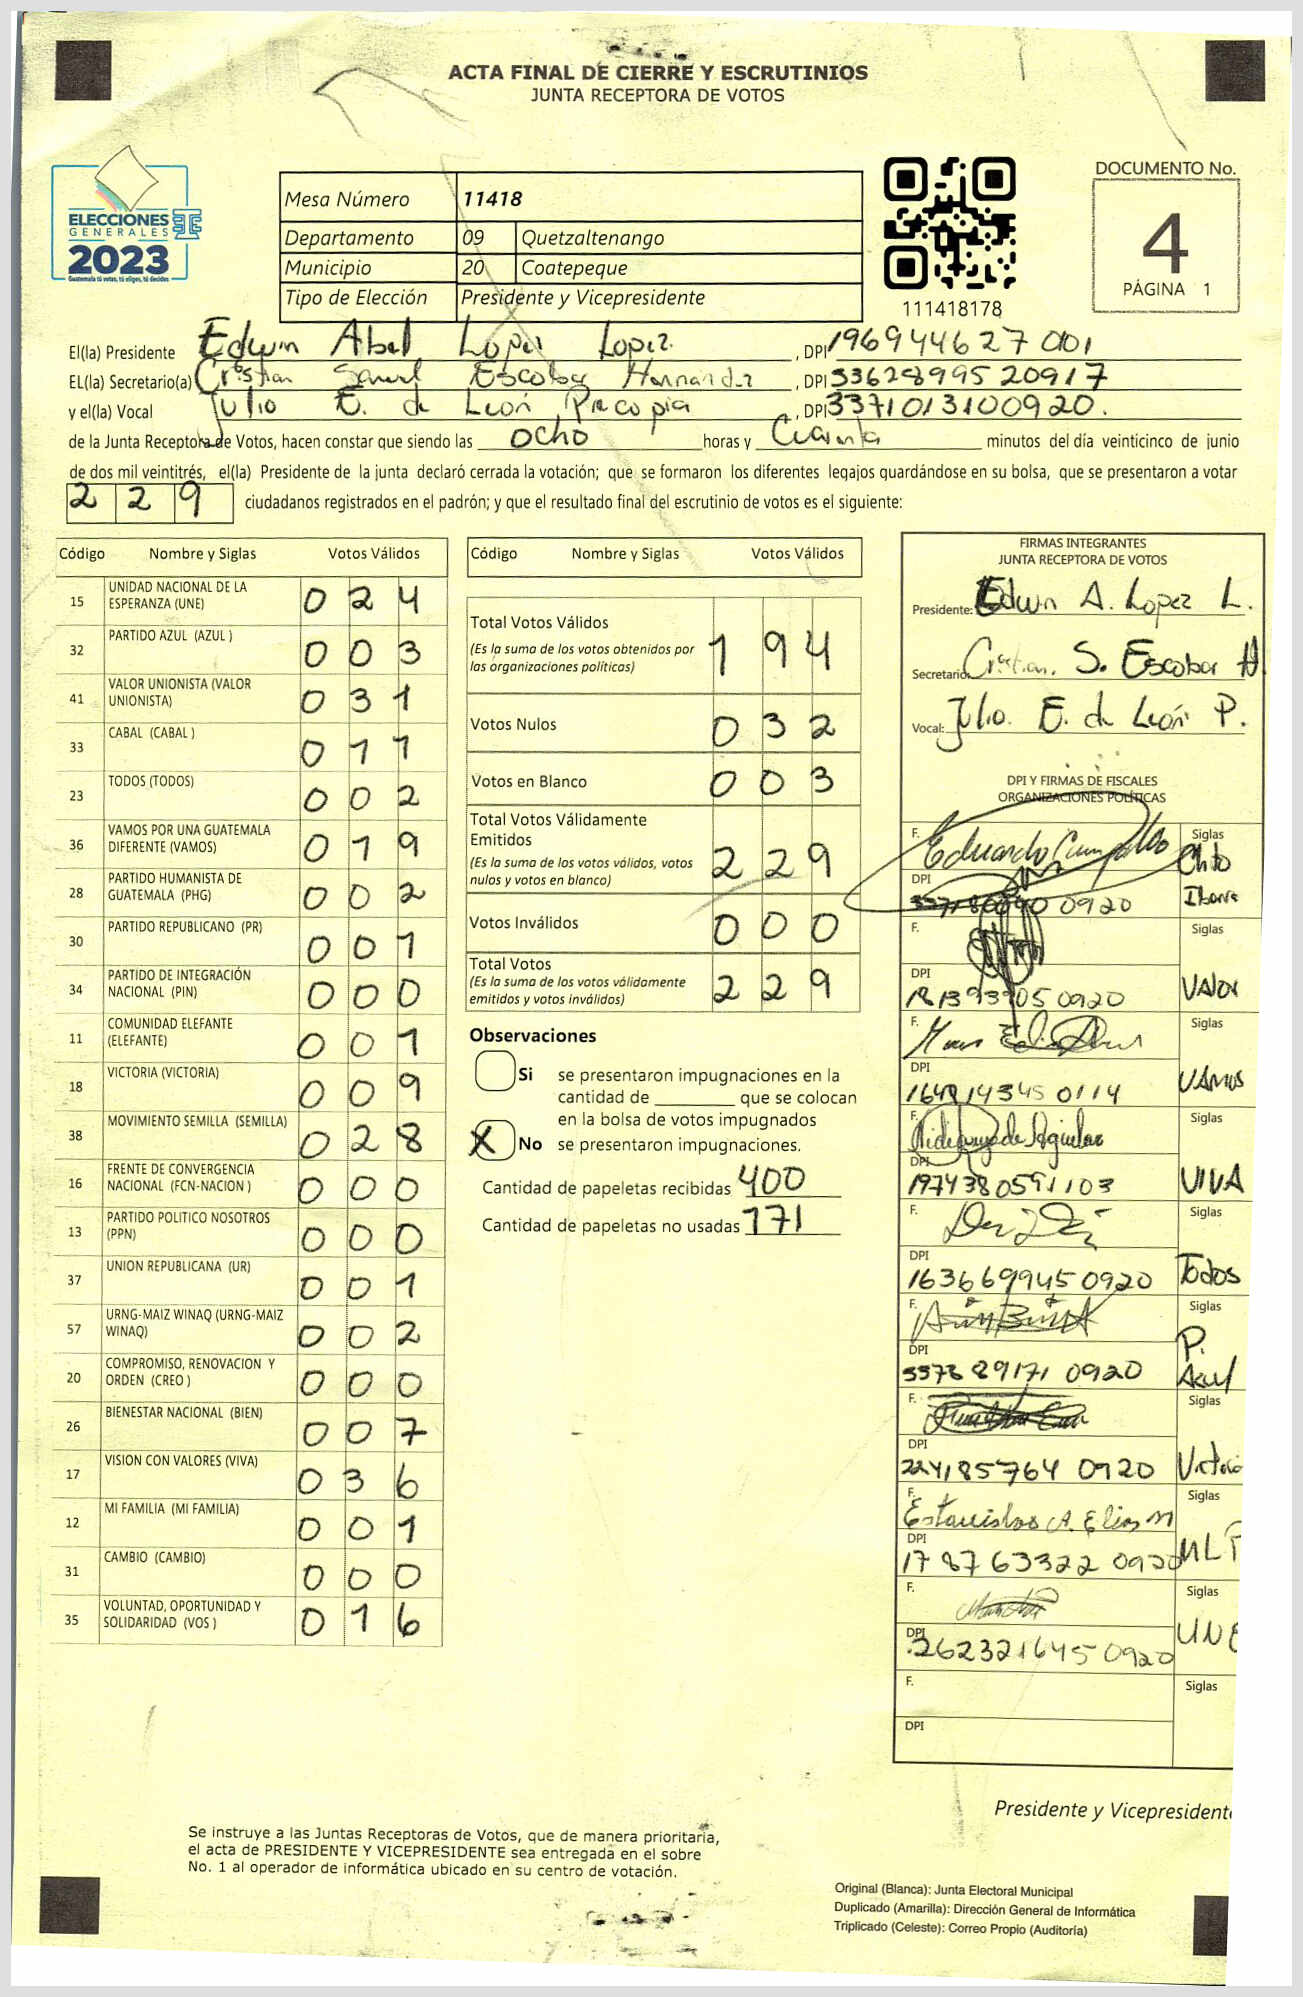 ACTA FINAL DE CIERRE Y ESCRUTINIOS
JUNTA RECEPTORA DE VOTOS
ELECCIONES
GENERALES
2023
Guatemala tú votas, tú eliges, tú decides
Mesa Número 11418
Departamento 09 Quetzaltenango
Municipio 20 Coatepeque
Tipo de Elección Presidente y Vicepresidente
111418178
DOCUMENTO No.
4
PÁGINA 1
El(la) Presidente Edwin Abel Lopez Lopez. , DPI 196944627 0101
EL(la) Secretario(a) Cristian Samuel Escobar Hernandez , DPI 3362899520917
y el(la) Vocal Julio E. de León Precopia , DPI 3371013100920.
de la Junta Receptora de Votos, hacen constar que siendo las ocho horas y Cuarenta minutos del día veinticinco de junio
de dos mil veintitrés, el(la) Presidente de la junta declaró cerrada la votación; que se formaron los diferentes legajos guardándose en su bolsa, que se presentaron a votar
229 ciudadanos registrados en el padrón; y que el resultado final del escrutinio de votos es el siguiente:
Código Nombre y Siglas Votos Válidos
15 UNIDAD NACIONAL DE LA ESPERANZA (UNE) 0 2 4
32 PARTIDO AZUL (AZUL ) 0 0 3
41 VALOR UNIONISTA (VALOR UNIONISTA) 0 3 1
33 CABAL (CABAL ) 0 1 1
23 TODOS (TODOS) 0 0 2
36 VAMOS POR UNA GUATEMALA DIFERENTE (VAMOS) 0 1 9
28 PARTIDO HUMANISTA DE GUATEMALA (PHG) 0 0 2
30 PARTIDO REPUBLICANO (PR) 0 0 1
34 PARTIDO DE INTEGRACIÓN NACIONAL (PIN) 0 0 0
11 COMUNIDAD ELEFANTE (ELEFANTE) 0 0 1
18 VICTORIA (VICTORIA) 0 0 9
38 MOVIMIENTO SEMILLA (SEMILLA) 0 2 8
16 FRENTE DE CONVERGENCIA NACIONAL (FCN-NACION ) 0 0 0
13 PARTIDO POLITICO NOSOTROS (PPN) 0 0 0
37 UNION REPUBLICANA (UR) 0 0 1
57 URNG-MAIZ WINAQ (URNG-MAIZ WINAQ) 0 0 2
20 COMPROMISO, RENOVACION Y ORDEN (CREO ) 0 0 0
26 BIENESTAR NACIONAL (BIEN) 0 0 7
17 VISION CON VALORES (VIVA) 0 3 6
12 MI FAMILIA (MI FAMILIA) 0 0 1
31 CAMBIO (CAMBIO) 0 0 0
35 VOLUNTAD, OPORTUNIDAD Y SOLIDARIDAD (VOS ) 0 1 6
Código Nombre y Siglas Votos Válidos
Total Votos Válidos 1 9 4
(Es la suma de los votos obtenidos por
las organizaciones políticas)
Votos Nulos 0 3 2
Votos en Blanco 0 0 3
Total Votos Válidamente
Emitidos 2 2 9
(Es la suma de los votos válidos, votos
nulos y votos en blanco)
Votos Inválidos 0 0 0
Total Votos 2 2 9
(Es la suma de los votos válidamente
emitidos y votos inválidos)
Observaciones
Si se presentaron impugnaciones en la
cantidad de ________ que se colocan
en la bolsa de votos impugnados
X No se presentaron impugnaciones.
Cantidad de papeletas recibidas 400
Cantidad de papeletas no usadas 171
FIRMAS INTEGRANTES
JUNTA RECEPTORA DE VOTOS
Presidente: Edwin A. Lopez L.
Secretario: Cristian. S. Escobar H.
Vocal: Julio. E. de León P.
DPI Y FIRMAS DE FISCALES
ORGANIZACIONES POLÍTICAS
F. Eduardo Siglas
DPI 0920
F. Siglas
DPI 0920 VALOR
F. Siglas
DPI 1648143450114 VAMOS
F. de Aguilar Siglas
DPI 1974380591103 VIVA
F. Siglas
DPI 1636699450920 Todos
F. Siglas
DPI 89171 0920 P. Azul
F. Siglas
DPI 224185764 0920 Victoria
F. Estanislao A. Elias M Siglas
DPI 1787633220920 MLP
F. Siglas
DPI 2623216450920 UNE
F. Siglas
DPI
Presidente y Vicepresident
Se instruye a las Juntas Receptoras de Votos, que de manera prioritaria,
el acta de PRESIDENTE Y VICEPRESIDENTE sea entregada en el sobre
No. 1 al operador de informática ubicado en su centro de votación.
Original (Blanca): Junta Electoral Municipal
Duplicado (Amarilla): Dirección General de Informática
Triplicado (Celeste): Correo Propio (Auditoría)